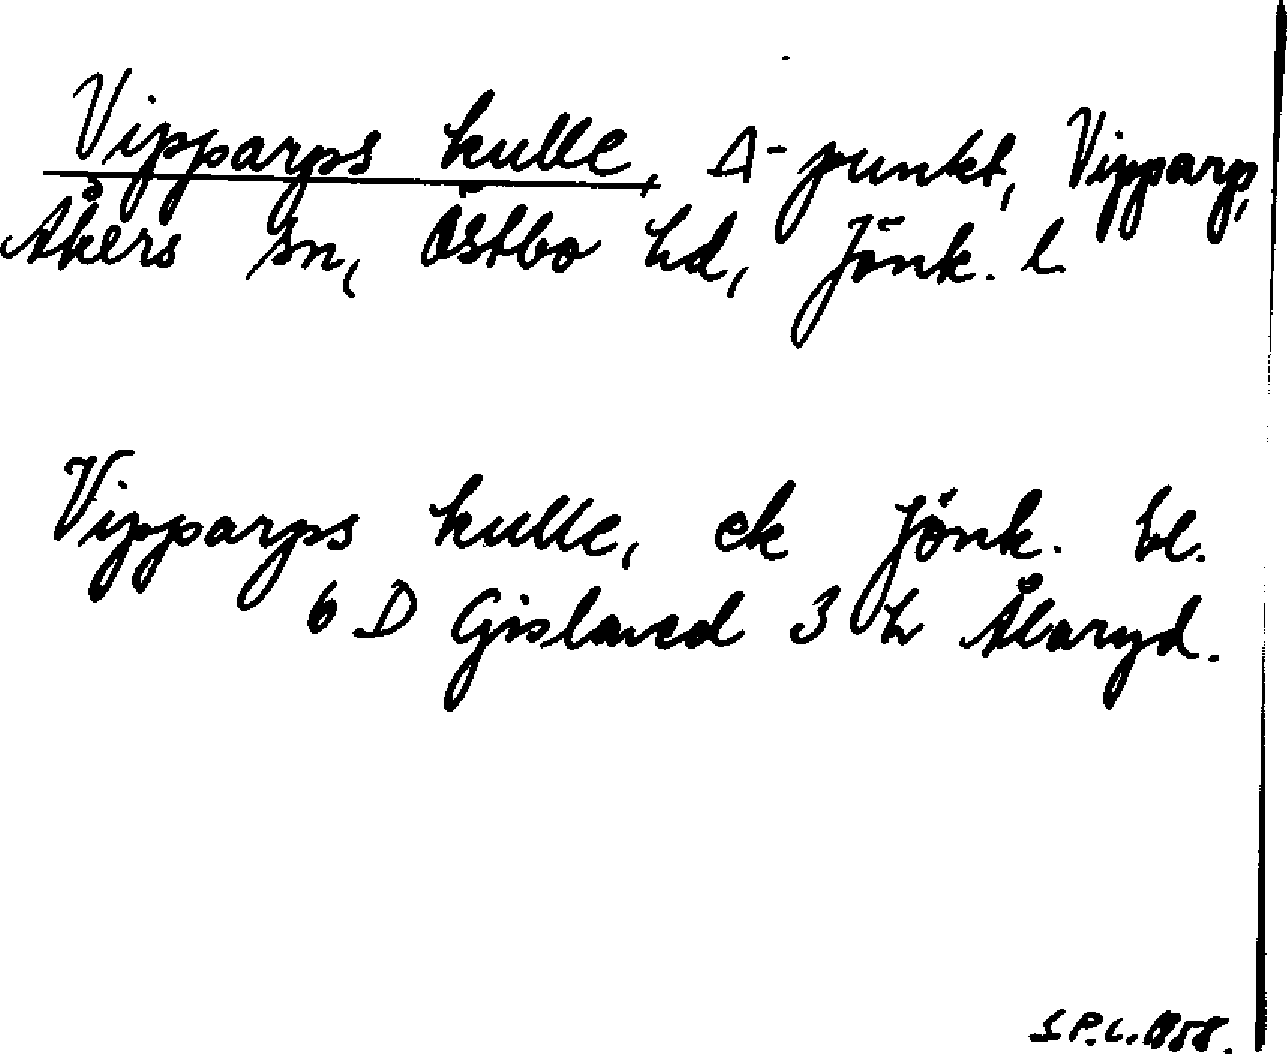 Vipparps kulle, Δ-punkt, Vipparp,
Åkers sn, Östbo hd, Jönk. l.
Vipparps kulle, ek Jönk. bl.
6 D Gislaved 3 h Åbaryd.
S.P.L. 1958.